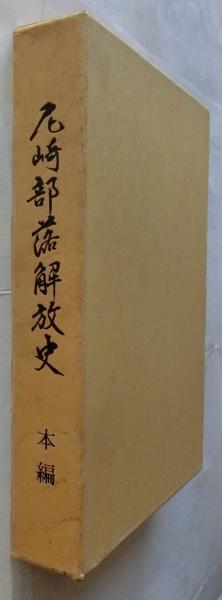 尼崎部落解放史
本編